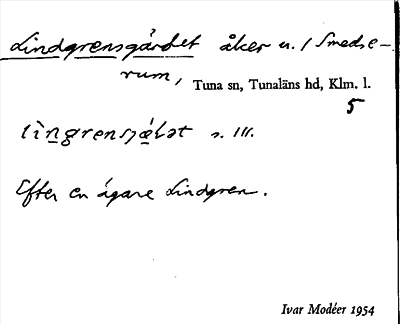 Lindgrensgärdet åker n. / Smedse-
rum,
Tuna sn, Tunaläns hd, Klm. l.
5
s. III.
Efter en ägare Lindgren.
Ivar Modéer 1954